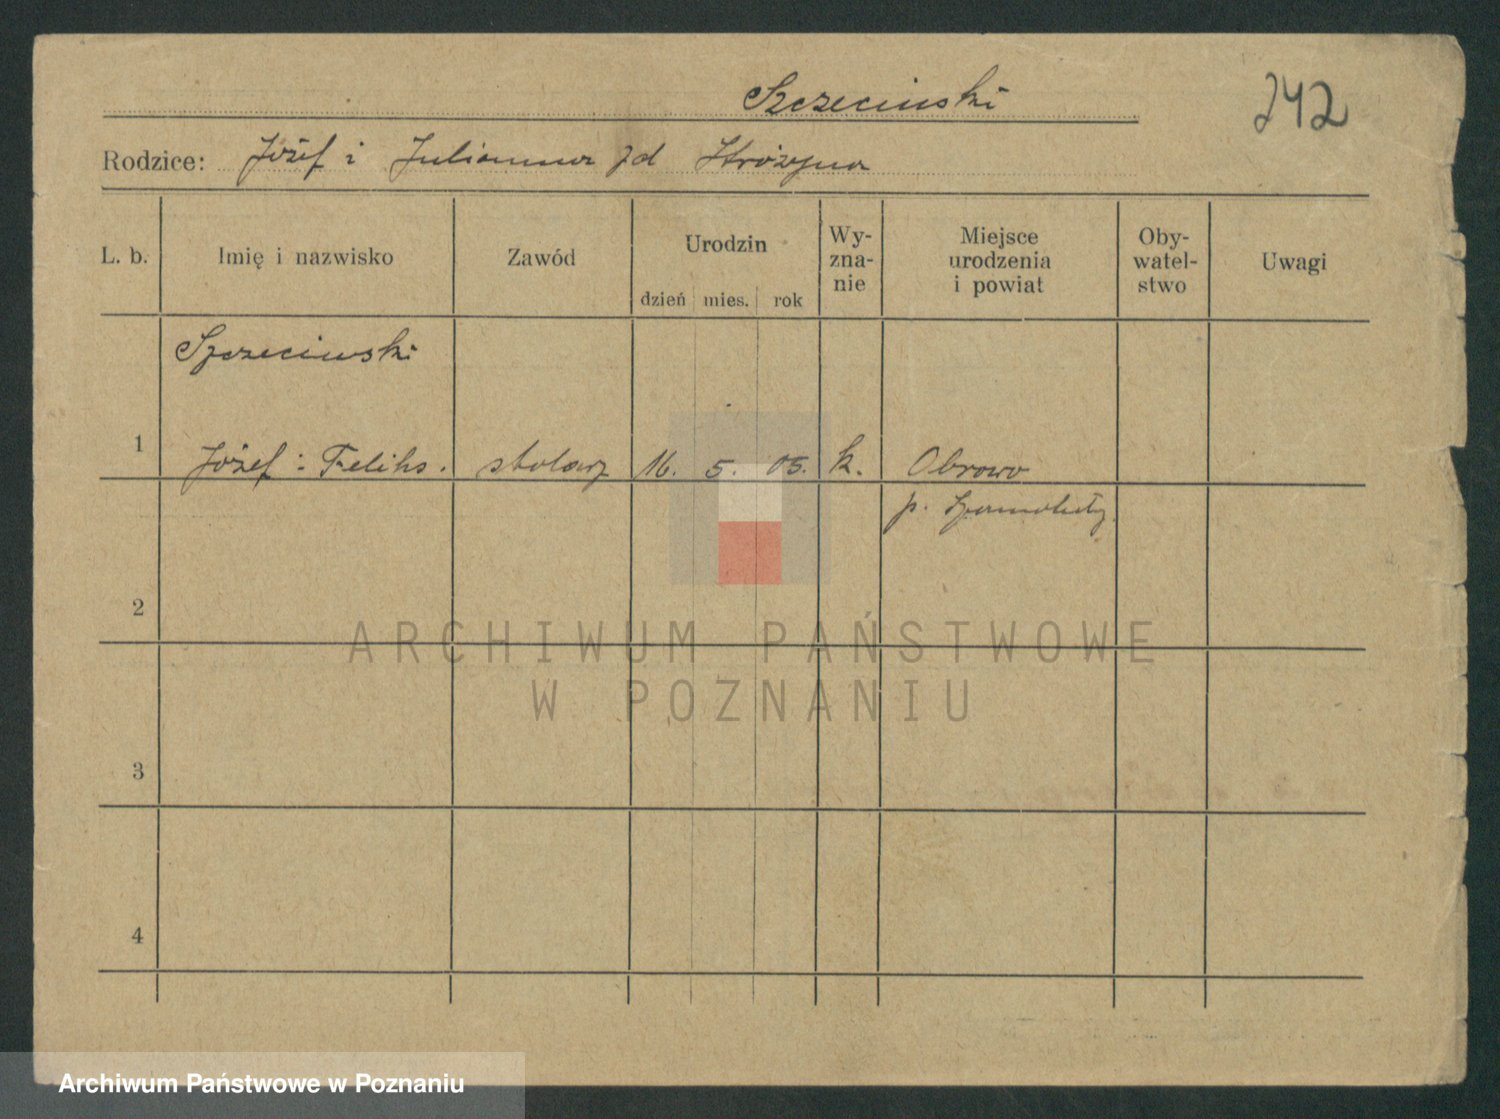 Szczeciński
242
Rodzice: Józef i Julianna zd Stróżyna
L. b.
Imię i nazwisko
Zawód
Urodzin
dzień mies. rok
Wy-
zna-
nie
Miejsce
urodzenia
i powiat
Oby-
watel-
stwo
Uwagi
Szczeciński
1 Józef : Feliks. stolarz 16. 5. 05. k. Obrowo
p. Szamotuły
2
ARCHIWUM PAŃSTWOWE
W POZNANIU
3
4
Archiwum Państwowe w Poznaniu